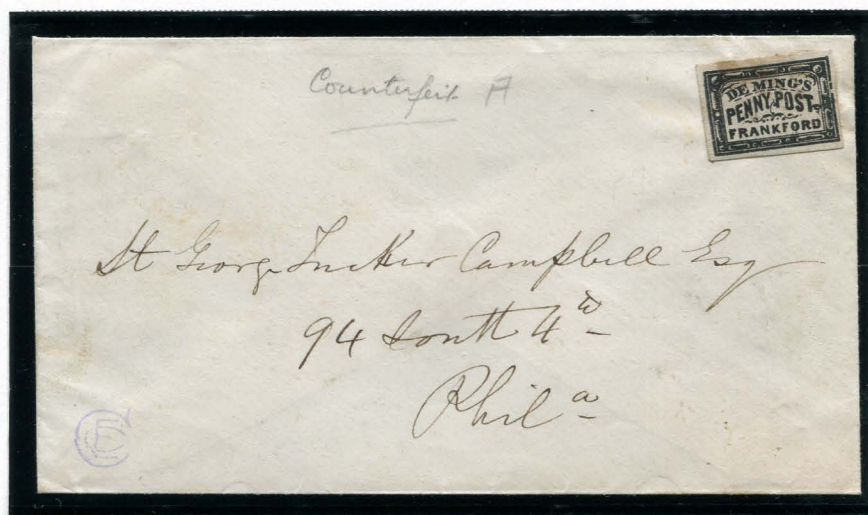 Counterfeit A
DE MING'S
PENNY POST.
FRANKFORD
St George Tucker Campbell Esq
94 South 4th
Phila